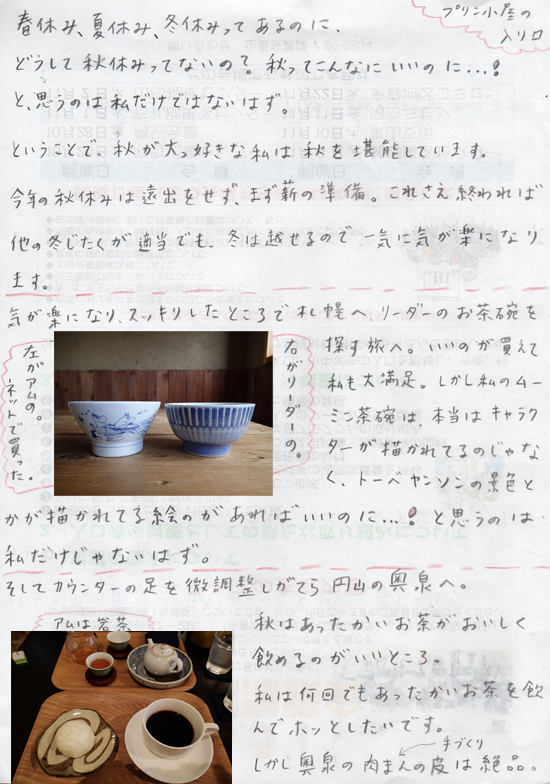 プリン小屋の
入り口
春休み、夏休み、冬休みってあるのに、
どうして秋休みってないの?秋ってこんなにいいのに…!
と、思うのは私だけではないはず。
ということで、秋が大っ好きな私は秋を堪能しています。
今年の秋休みは遠出をせず、まず薪の準備。これさえ終われば
他の冬じたくが適当でも、冬は越せるので一気に気が楽になり
ます。
気が楽になり、スッキリしたところで札幌へ、リーダーのお茶碗を
探す旅へ。いいのが買えて
私も大満足。しかし私のムー
ミン茶碗は、本当はキャラク
ターが描かれてるのじゃな
く、トーベヤンソンの景色と
かが描かれてる絵のがあればいいのに…!と思うのは
私だけじゃないはず。
左がアムの。
ネットで買った。
右がリーダーの。
そしてカウンターの足を微調整しがてら円山の奥泉へ。
アムは岩茶
秋はあったかいお茶がおいしく
飲めるのがいいところ。
私は何回でもあったかいお茶を飲
んでホッとしたいです。
手づくり
しかし奥泉の肉まんの皮は絶品。